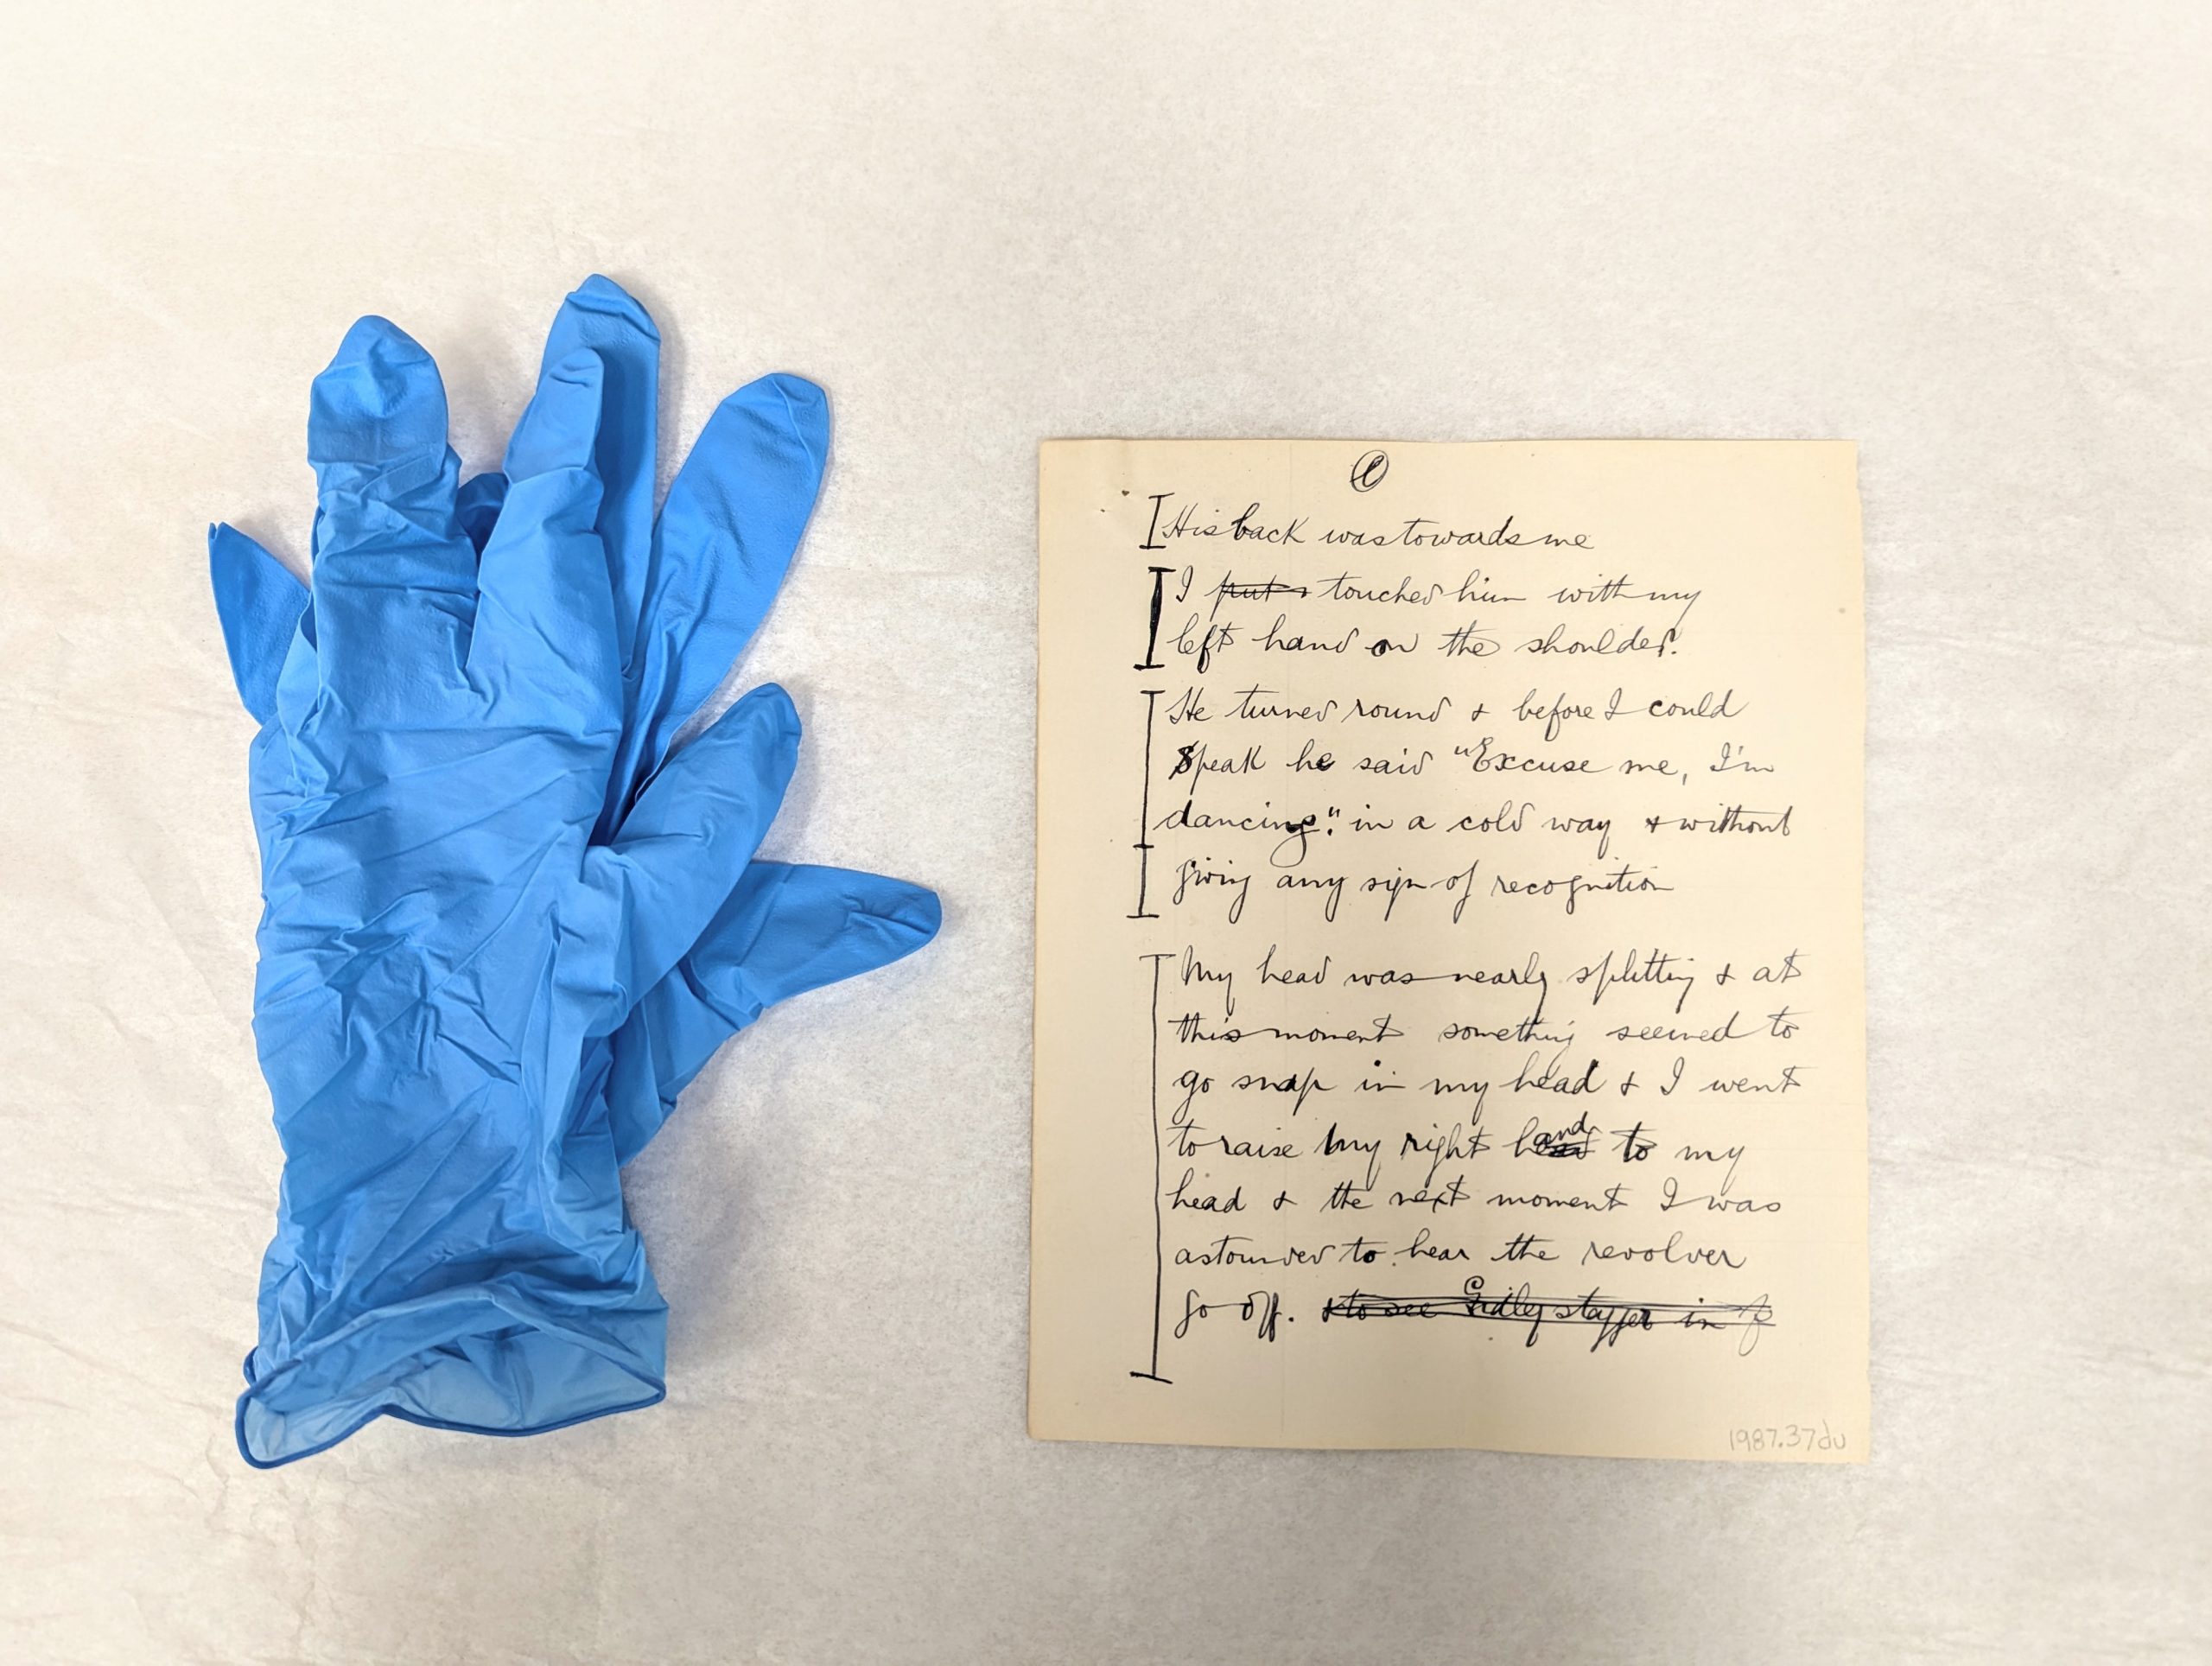 His back was towards me
I put touched him with my
left hand on the shoulder.
He turned round & before I could
speak he said "Excuse me, I'm
dancing". in a cold way & without
giving any sign of recognition
My head was nearly splitting & at
this moment something seemed to
go snap in my head & I went
to raise my right hand to my
head & the next moment I was
astounded to hear the revolver
go off. & to see Gidley stagger in f
1987.37du